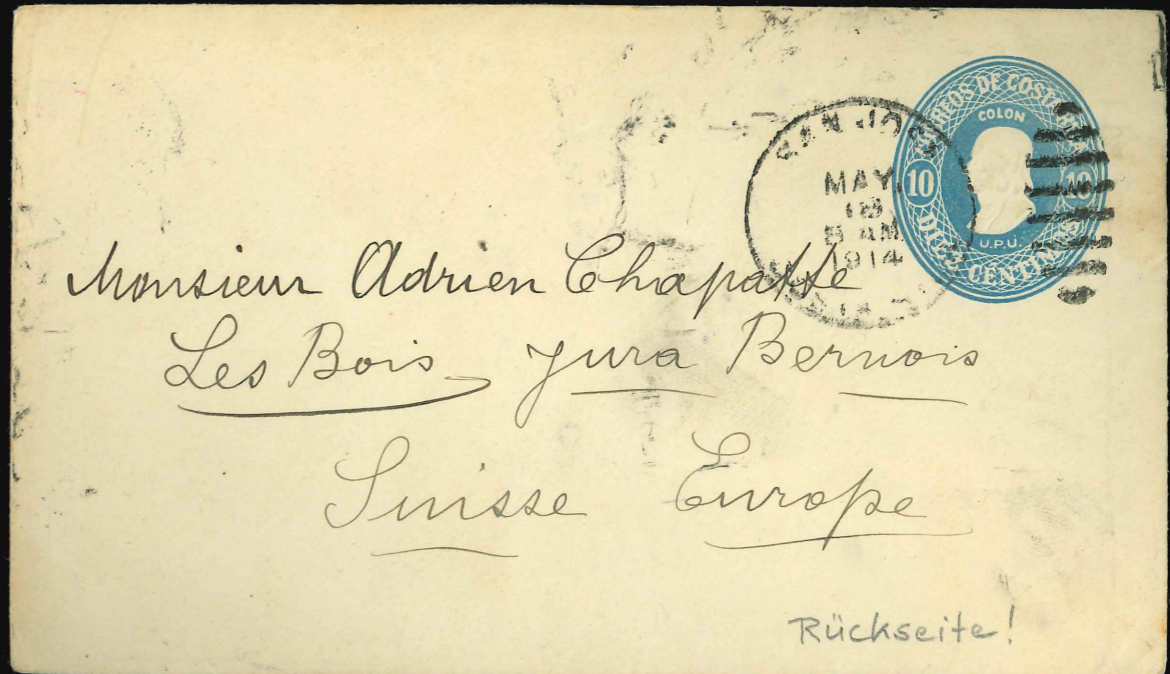 CORREOS DE COSTA RICA
COLON
10 10
U.P.U.
DIEZ CENTIMOS
SAN JOSE
MAY.
18
8 AM
1914
Monsieur Adrien Chapatte
Les Bois, Jura Bernois
Suisse Europe
Rückseite!